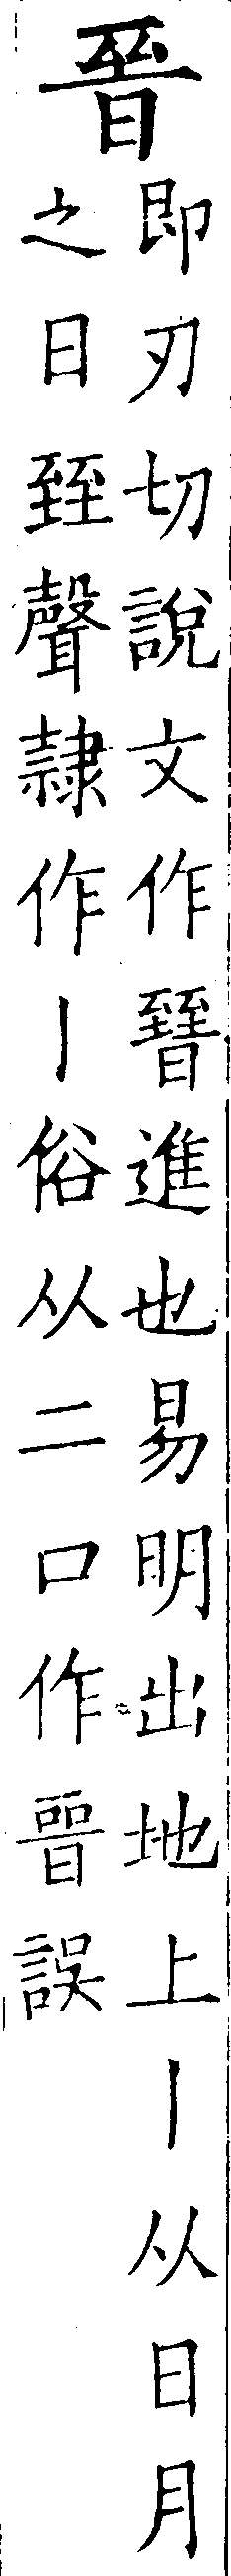 晉
即刃切説文作㬜進也易明出地上丨从日月
之日臸聲隷作丨俗从二口作𣈆誤